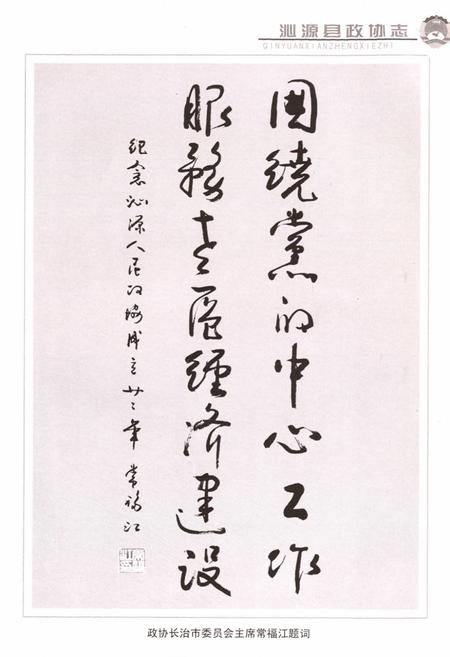 沁源县政协志
QINYUANXIANZHENGXIEZHI
圍繞黨的中心工作
服務老區經济建设
紀念沁源人民政協成立廿二年 常福江
政协长治市委员会主席常福江题词